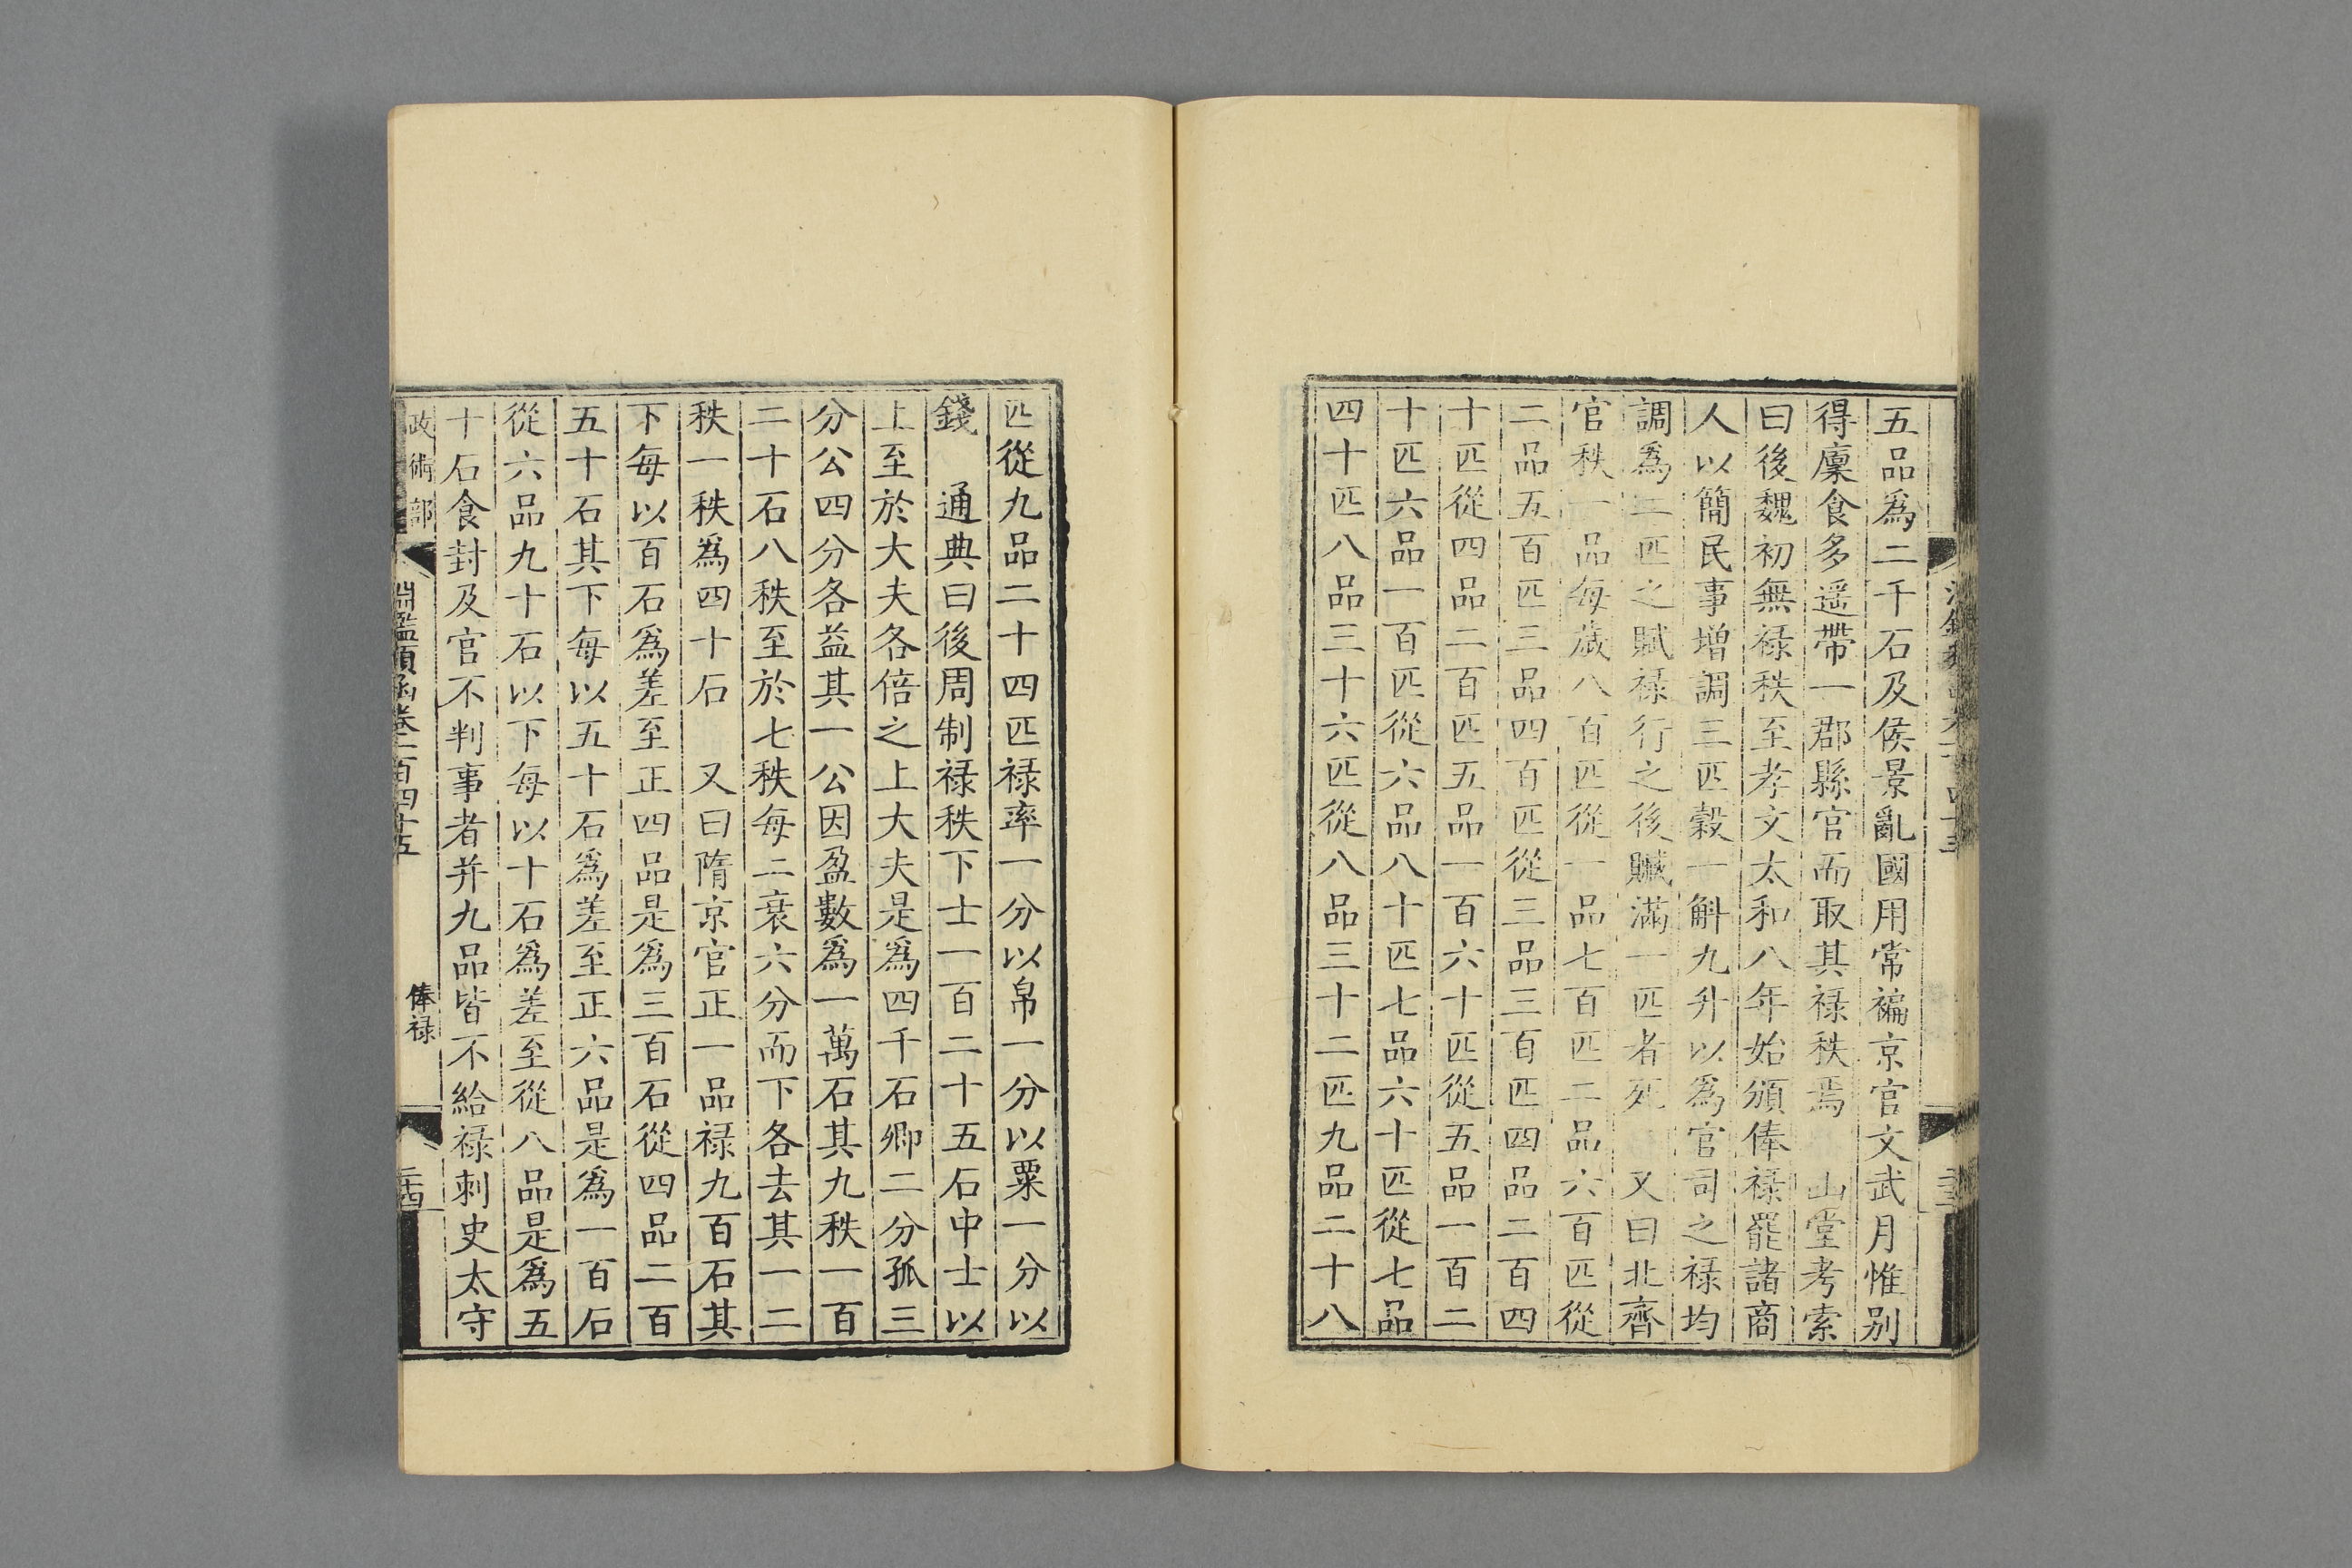 五品爲二千石及侯景亂國用常褊京官文武月惟别
得廩食多遥帶一郡縣官而取其禄秩焉　山堂考索
曰後魏初無禄秩至孝文太和八年始頒俸禄罷諸商
人以簡民事增調三匹穀一斛九升以爲官司之禄均
調爲二匹之賦禄行之後贓滿一匹者死　又曰北齊
官秩一品每歲八百匹從一品七百匹二品六百匹從
二品五百匹三品四百匹從三品三百匹四品二百四
十匹從四品二百匹五品一百六十匹從五品一百二
十匹六品一百匹從六品八十匹七品六十匹從七品
四十匹八品三十六匹從八品三十二匹九品二十八
匹從九品二十四匹禄率一分以帛一分以粟一分以
錢　通典曰後周制禄秩下士一百二十五石中士以
上至於大夫各倍之上大夫是爲四千石卿二分孤三
分公四分各益其一公因盈數爲一萬石其九秩一百
二十石八秩至於七秩每二衰六分而下各去其一二
秩一秩爲四十石　又曰隋京官正一品禄九百石其
下每以百石爲差至正四品是爲三百石從四品二百
五十石其下每以五十石爲差至正六品是爲一百石
從六品九十石以下每以十石爲差至從八品是爲五
十石食封及官不判事者并九品皆不給禄刺史太守
政術部
淵鑑類函卷一百四十五
俸禄
二十四